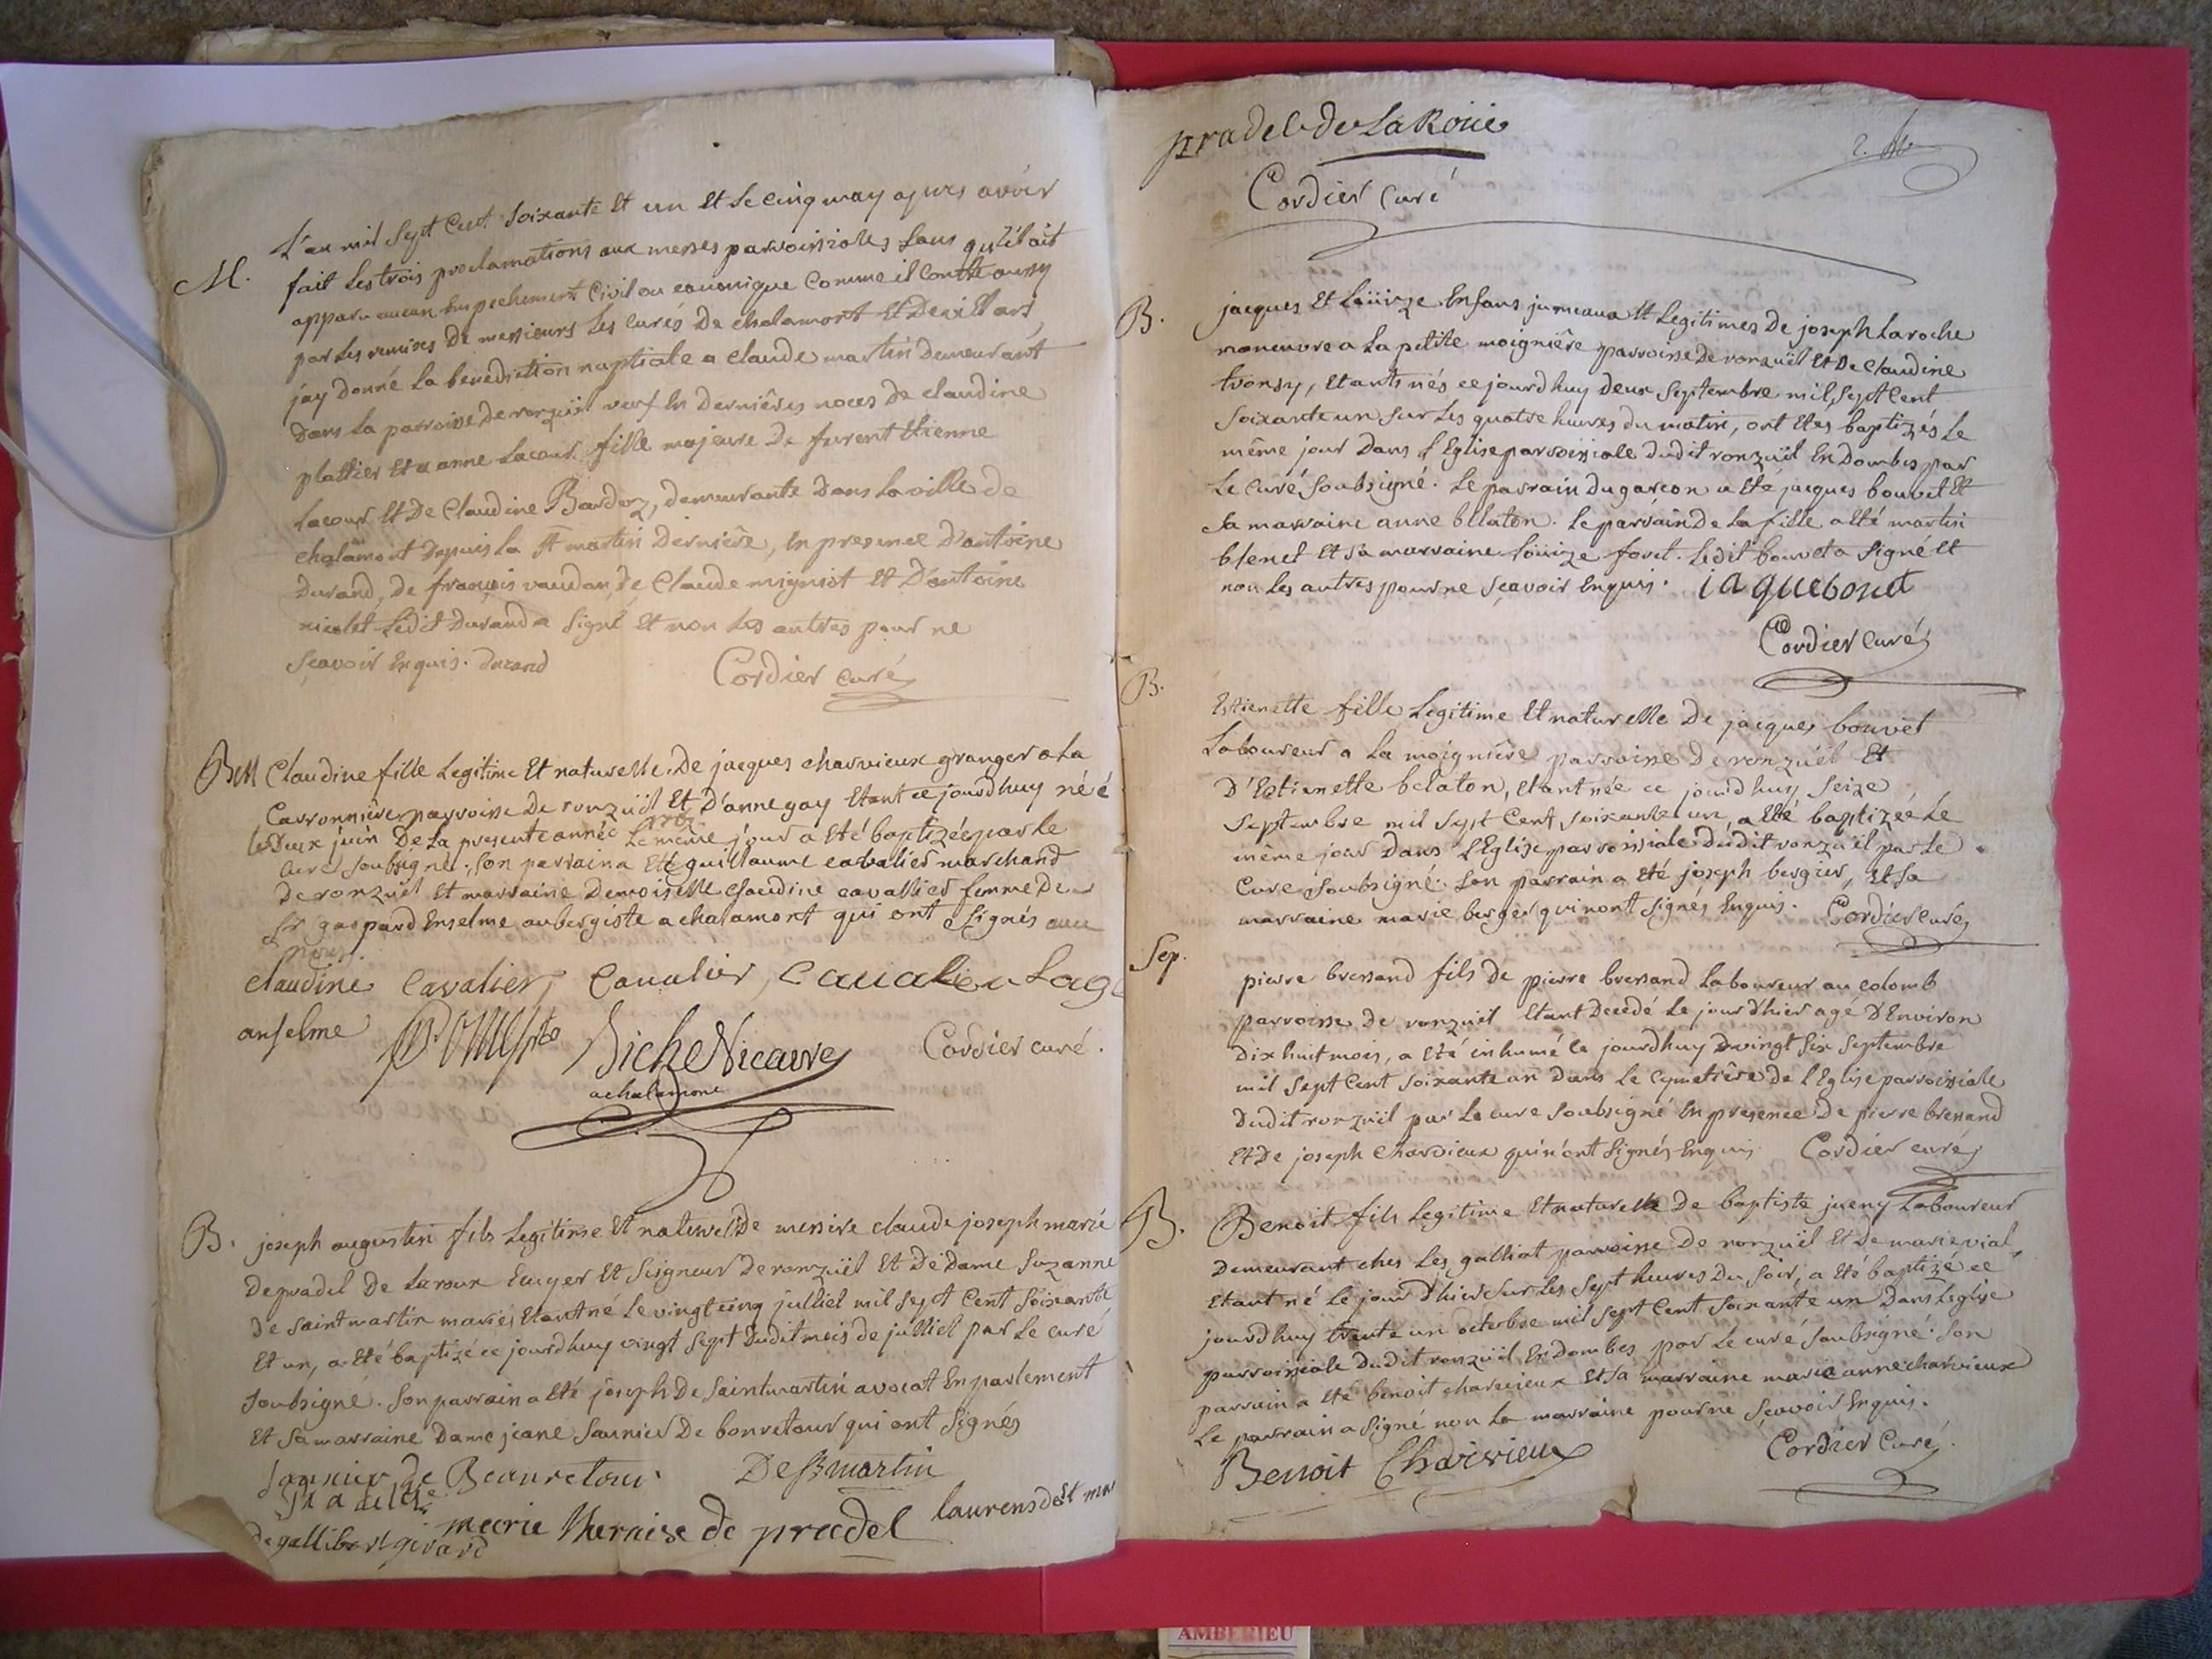 M.
L'an mil sept cent soixante et un et le cinq may apres avoir
fait les trois proclamations aux messes parroissiales sans qu'il ait
apparu aucun empechement civil ou canonique comme il conste aussy
par les remises de messieurs les curés de chalamont et de villars
j'ay donné la benediction nuptiale a claude martin demeurant
dans la parroisse de ronzuël veuf en dernières noces de claudine
plattier et a anne lacour fille majeure de furent etienne
lacour et de claudine Bardoz, demeurante dans la ville de
chalamont depuis la st martin dernière, en presence d'antoine
durand, de françois vaudan, de claude migniot et d'antoine
nicolet ledit durand a signé et non les autres pour ne
sçavoir enquis. durand Cordier curé
Claudine fille legitime et naturelle de jacques charvieux granger a la
carronnière parroisse de ronzuël et d'anne gay etant ce jourd huy néé
le deux juin de la presente année 1761 le meme jour a eté baptizéé par le
curé soubsigné. son parrain a eté guillaume cavalier marchand
de ronzuël et marraine demoiselle claudine cavallier femme de
sr gaspard enselme aubergiste a chalamont qui ont signés avec
nous.
claudine cavalier, Caualier, Caualier
anselme Cordier curé.
achalamont
B. joseph augustin fils legitime et naturel de messire claude joseph marie
de pradel de laroux ecuyer et seigneur de ronzuël et de dame suzanne
de saint martin mariés etant né le vingt cinq julliet mil sept cent soixante
et un, a eté baptizé ce jourd huy vingt sept dudit mois de julliet par le curé
soubsigné. son parrain a eté joseph de saint martin avocat en parlement
et sa marraine dame jeane saunier de bonretour qui ont signés
saunier de Beauretour De St martin
laurens de St mar
de gallibert girard marie de pradel
pradel de La Roüe
Cordier curé
B. jacques et loüize enfans jumeaux et legitimes de joseph laroche
manœuvre a la petite moignière parroisse de ronzuël et de claudine
tronsy, etants nés ce jourd huy deux septembre mil sept cent
soixante un sur les quatre heures du matin, ont etés baptizés le
même jour dans l'Eglise parroissiale dudit ronzuël en dombes par
le curé soubsigné. le parrain du garçon a eté jacques bouvet et
sa marraine anne bllaton. le parrain de la fille a eté martin
blenet et sa marraine loüize foret. ledit bouvet a signé et
non les autres pour ne sçavoir enquis. iaquebouet
Cordier curé
B. Estienette fille legitime et naturelle de jacques bouvet
laboureur a la moignière parroisse de ronzuël et
d'Estienette belaton, etant née ce jourd huy seize
septembre mil sept cent soixante un, a eté baptizéé le
même jour dans l'Eglise parroissiale dudit ronzuël par le
curé soubsigné. son parrain a eté joseph berger, et sa
marraine marie berger qui n'ont signés enquis. Cordier curé
Sep. pierre bressand fils de pierre bressand laboureur au colomb
parroisse de ronzuël etant decedé le jour d'hier agé d'environ
dix huit mois, a eté inhumé ce jourd huy vingt six septembre
mil sept cent soixante un dans le cymetière de l'Eglise parroissiale
dudit ronzuël par le curé soubsigné en presence de pierre bressand
et de joseph charvieux qui n'ont signés enquis Cordier curé
B. Benoit fils legitime et naturelle de baptiste jueny laboureur
demeurant ches les galliat parroisse de ronzuël et de marie vial,
etant né le jour d'hier sur les sept heures du soir, a eté baptizé ce
jourd huy trente un octobre mil sept cent soixante un dans l'eglise
parroissiale dudit ronzuël en dombes par le curé soubsigné. son
parrain a eté benoit charvieux et sa marraine marie anne charvieux
le parrain a signé non la marraine pour ne sçavoir enquis.
Benoit Charvieux Cordier curé
AMBERIEU